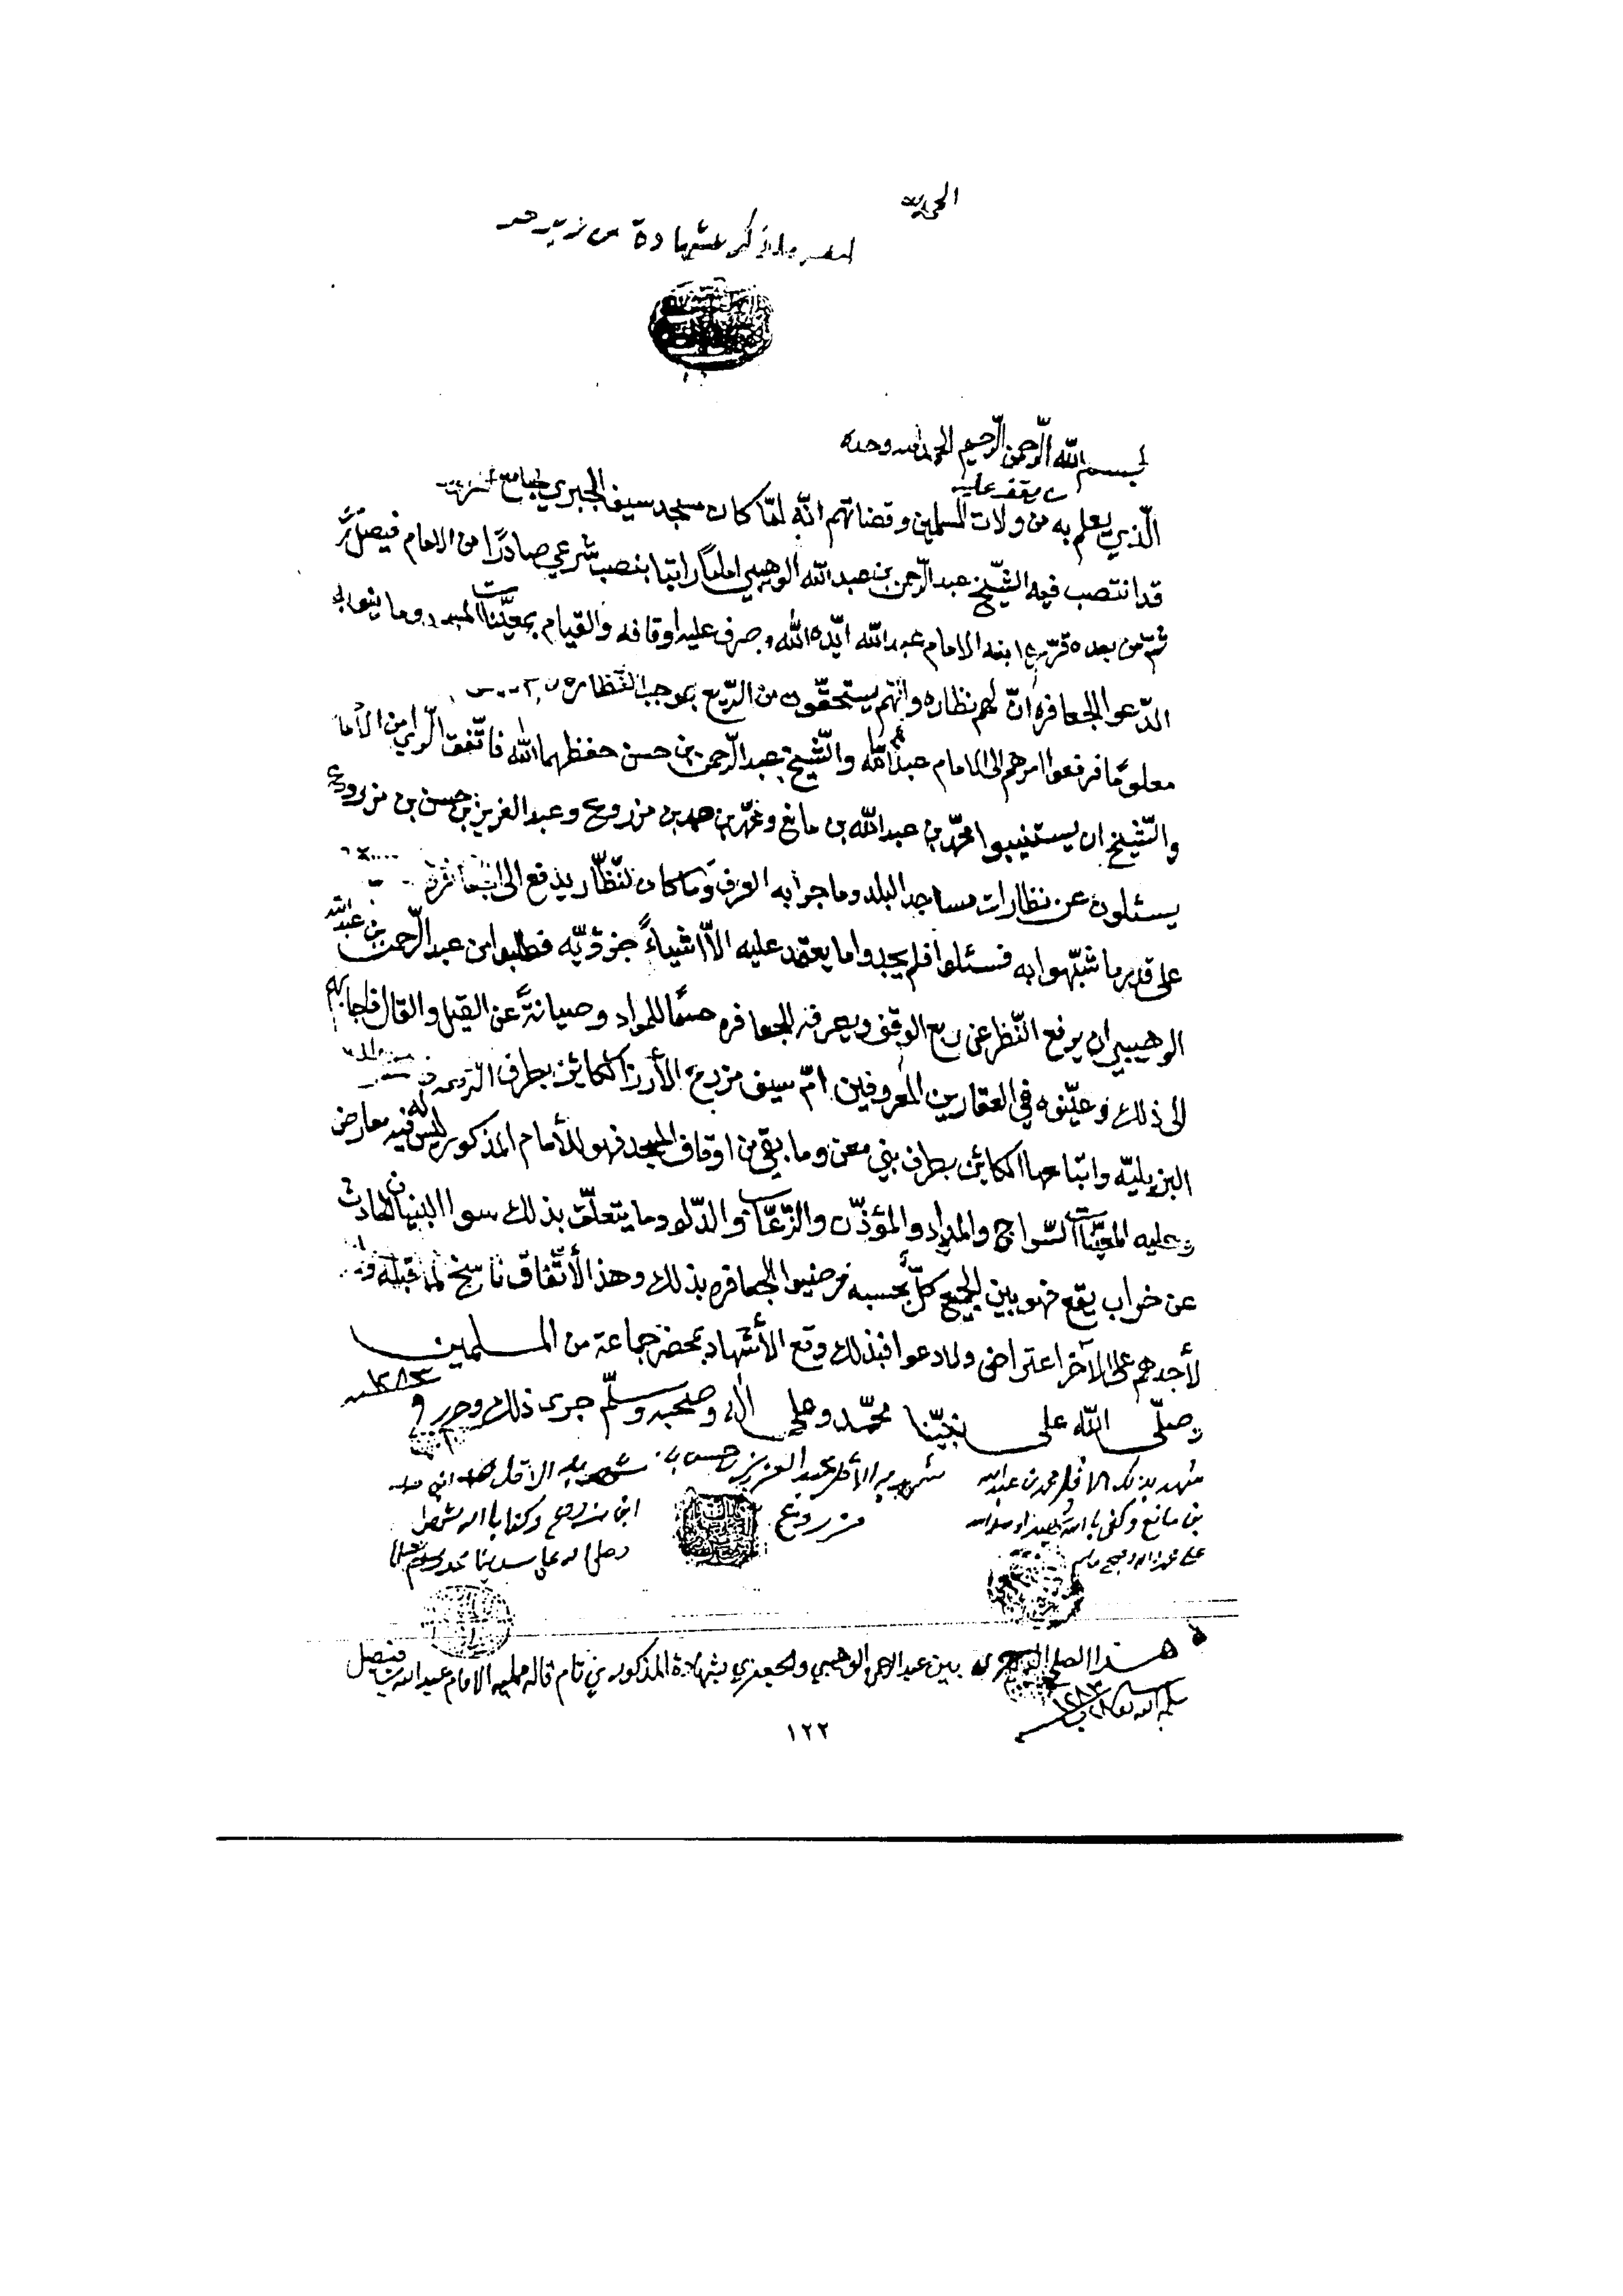 الحمد لله
ما ذكر شهادة من
بسم الله الرحمن الرحيم الحمد لله وحده
من يقف عليه
الّذي يعلم به من ولات المسلمين وقضاتهم انّه لمّا كان مسجد سيف الجبري جامع
قد انتصب فيه الشّيخ عبد الرّحمن بن عبد الله الوهيبي اماما راتبا بنصب شرعي صادرًا من الامام فيصل
ثمّ من بعده قرّره ابنه الامام عبد الله ايّده الله وصرف عليه اوقافه والقيام بمعيّنات المسجد وما
ادّعوا الجعافره انّ لهم نظاره وانّهم يستحقّون من الرّيع بموجب النّظاره
معلومًا فرفعوا امرهم الى الامام عبد الله والشّيخ عبد الرّحمن بن حسن حفظهما الله فاتّفق الرّاي من الامام
والشّيخ ان يستنيبوا محمّد بن عبد الله بن مانع و بن حمد بن مزروع وعبد العزيز بن حسن بن مزروع
يسئلون عن نظارات مساجد البلد وما جرا به العرف وما كان لنظّار يدفع الى الجعافره
على قدر ما شبّهوا به فسئلوا فلم يجدوا ما يعتمد عليه الاّ اشياءً جزؤيّه فطلبوا من عبد الرّحمن بن عبد الله
الوهيبي ان يرفع النّظر عن ربع الوقف ويصرفه للجعافره حسمًا للمواد وصيانةً عن القيل والقال فاجابهم
الى ذلك وعيّنوه في العقارين المعروفين امّ سيف مزرع الأرز الكاين بطرف
البزيليّه واتباعها الكائن بطرف بني معن وما بقي من اوقاف المسجد فهو للأمام المذكور ليس له فيه معارض
وعليه المعيّنات السّراج والمداد والمؤذّن والدّلو وما يتعلّق بذلك سوا البنيان الحادث
عن خراب يقع فهو بين الجميع كلّ بحسبه فرضيوا الجعافره بذلك وهذا الأتّفاق ناسخ لما قبله
لأحدهم على الآخر اعتراض ولا دعوا فبذلك وقع الأشهاد بمحضر جماعة من المسلمين
وصلّى الله على نبيّنا محمّد وعلى اله وصحبه وسلّم جرى ذلك وحرر في ١٢٨٣
شهد بذلك الاقل محمد بن عبد الله
بن مانع وكفى بالله شهيدا وصلى الله
على محمد واله وصحبه وسلم
شهد به الأقل عبد العزيز بن حسن بن
مزروع
شهد به الاقل حمد
ابن مزروع وكفا بالله شهيدا
وصلى الله على سيدنا محمد وسلم
هذا الصلح بين عبد الرحمن الوهيبي والجعفري بشهادة المذكورين تام قاله ممليه الامام عبد الله بن فيصل
سلمه الله تعالى ١٢٨٣
١٢٢